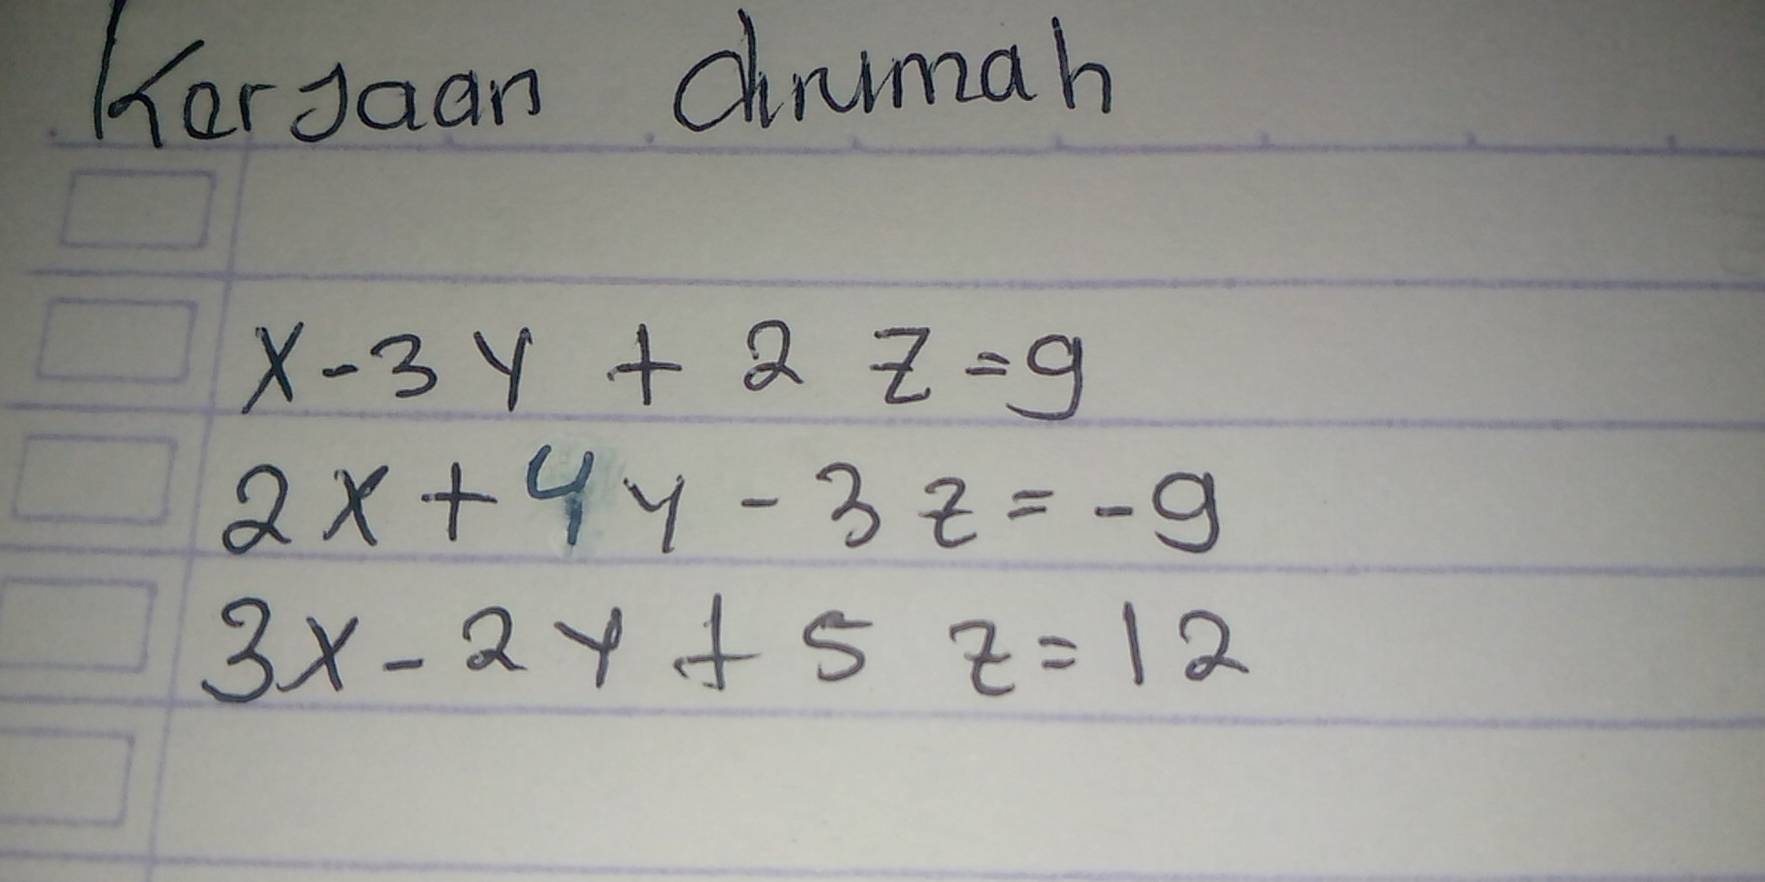 Kerjaan dirumah
x-3y + 2 z=9
2x+4y-3z=-9
3x-2y+5 z=12